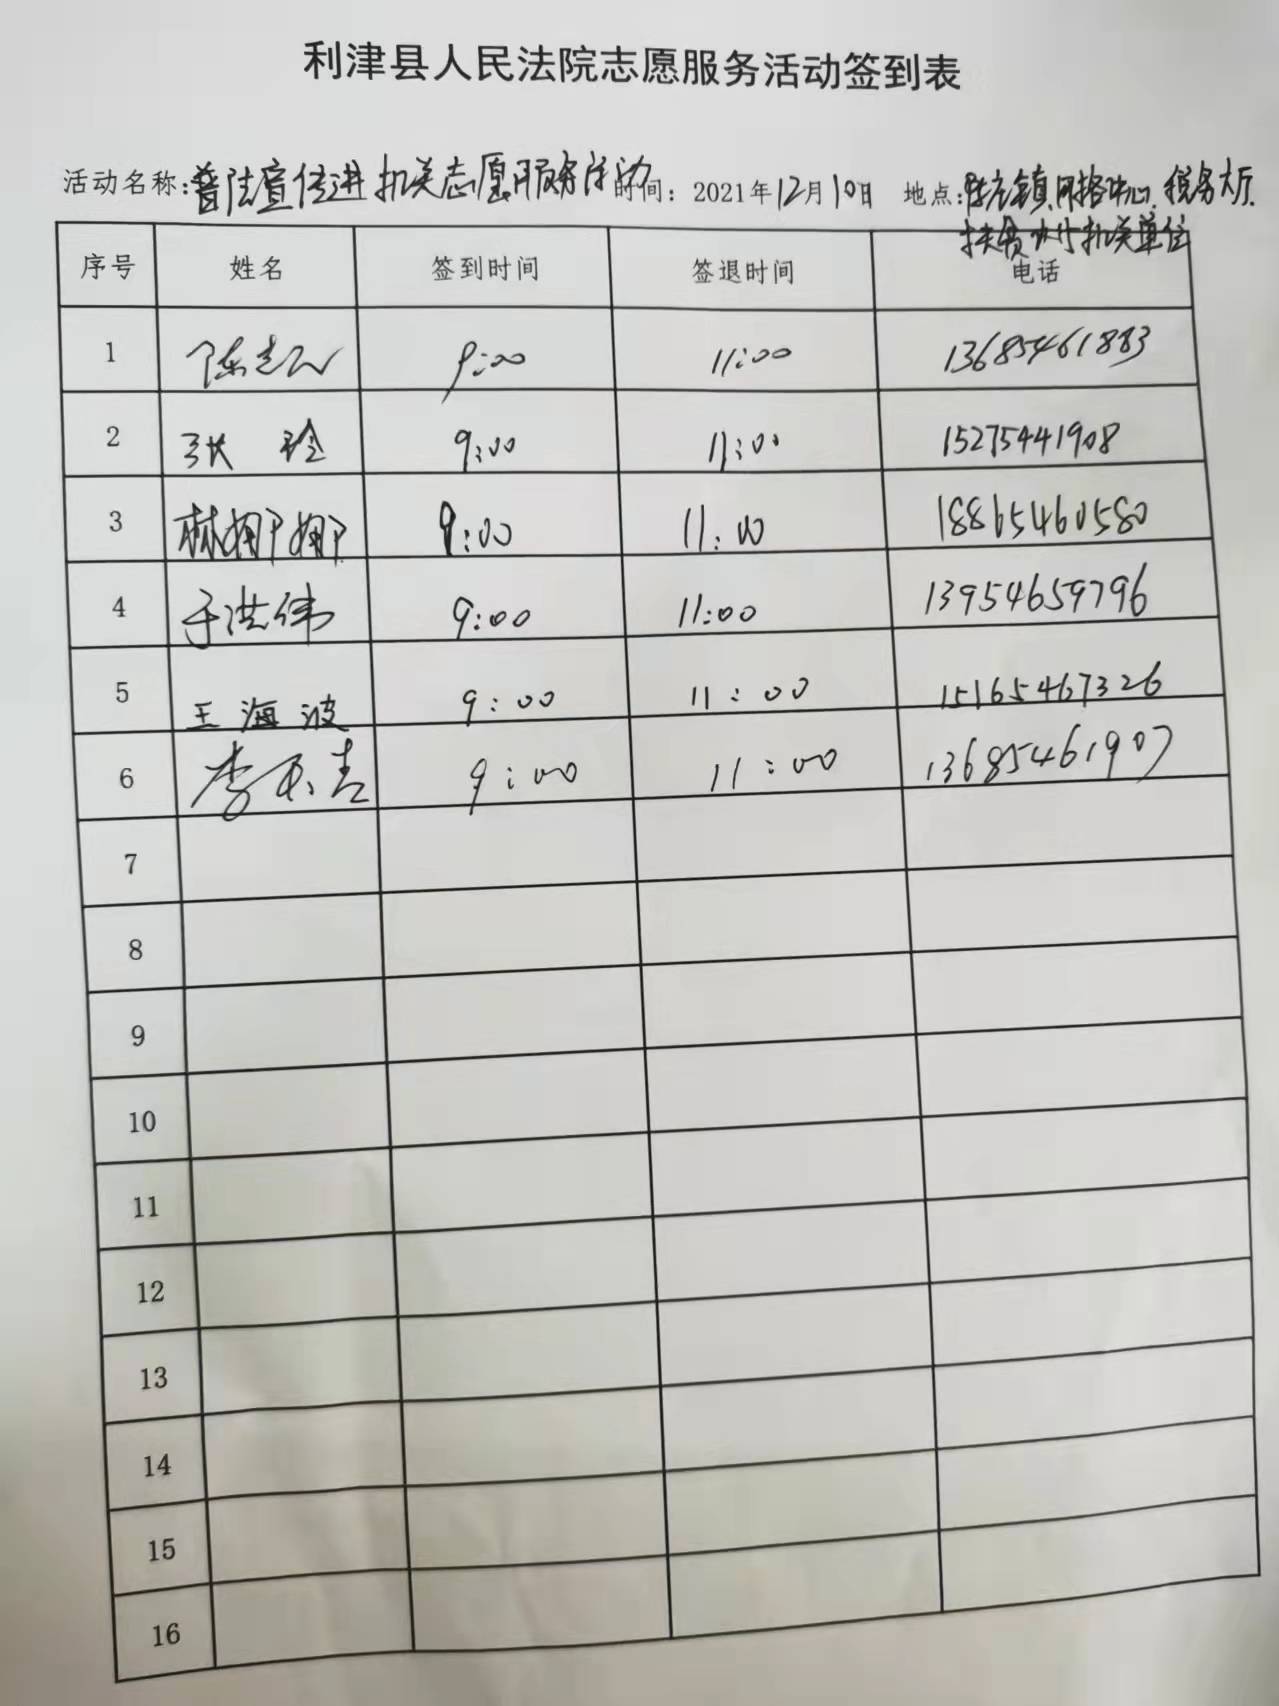 利津县人民法院志愿服务活动签到表
活动名称:普法宣传进机关志愿服务活动 时间: 2021年12月10日 地点:陈庄镇网格中心、税务大厅、
扶贫办等机关单位
序号 姓名 签到时间 签退时间 电话
1 陈志 9:00 11:00 13685461883
2 张玲 9:00 11:00 15275441908
3 林娜娜 9:00 11:00 18865460580
4 于洪伟 9:00 11:00 13954659796
5 王海波 9:00 11:00 15165467326
6 李 9:00 11:00 13685461907
7
8
9
10
11
12
13
14
15
16